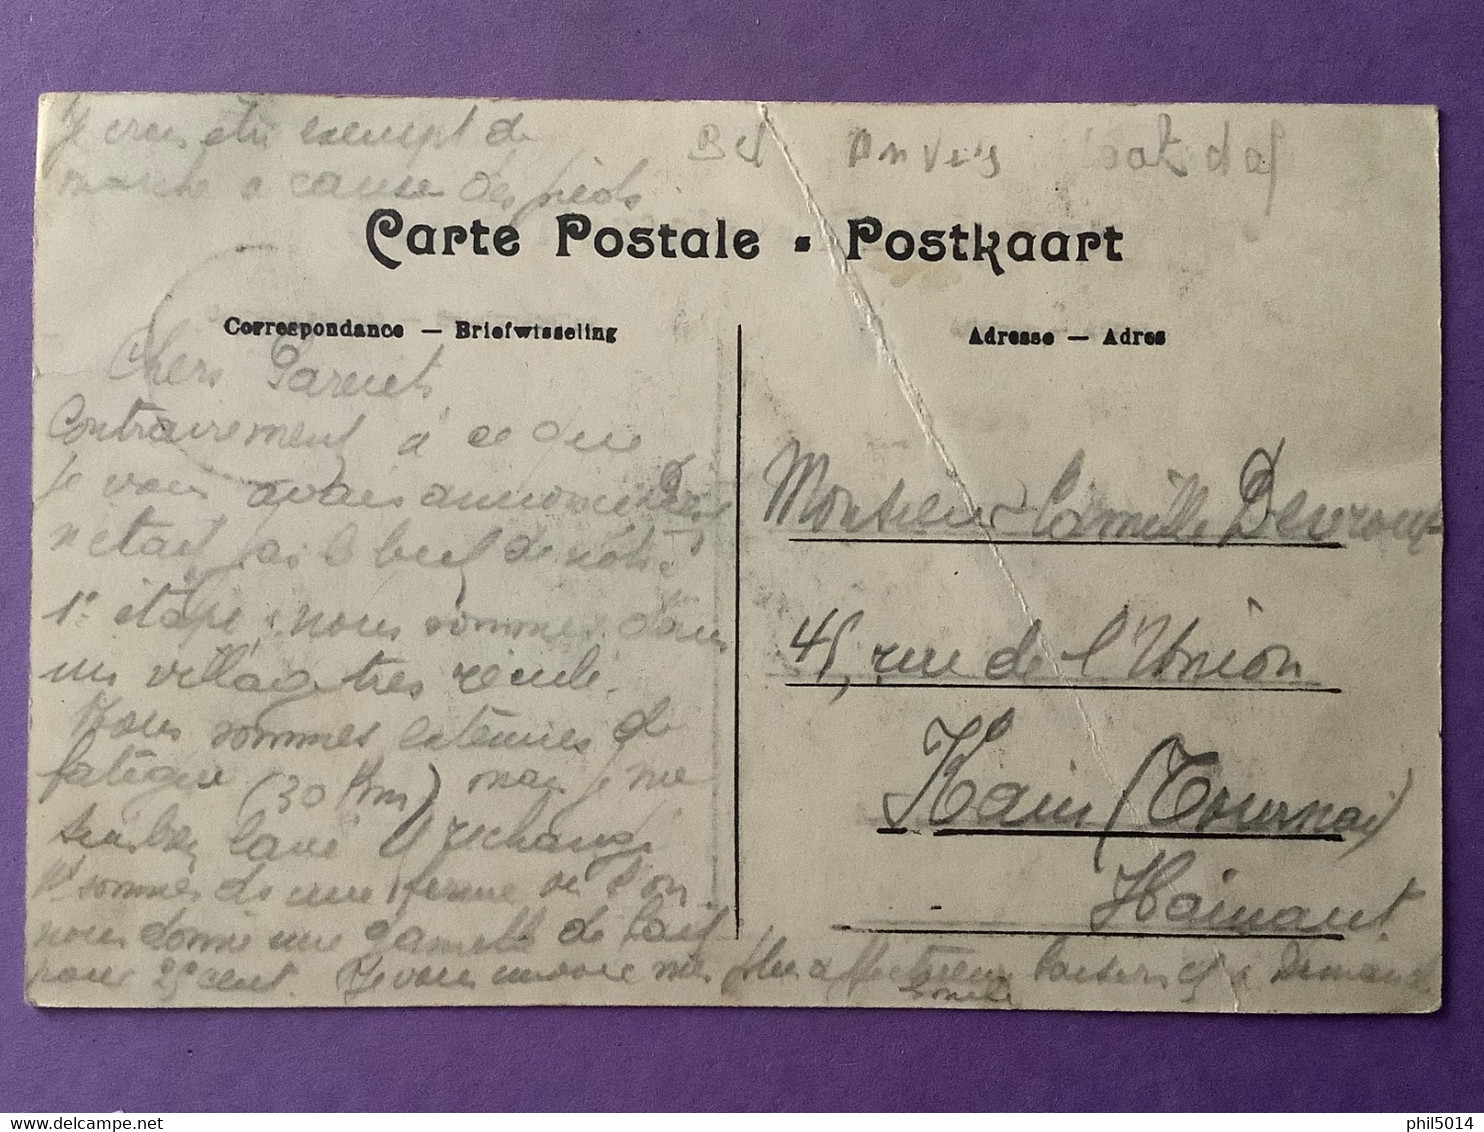 Je crois être exempt de
marche a cause des pieds
Anvers
Carte Postale - Postkaart
Correspondance — Briefwisseling
Adresse — Adres
Chers Parents
Contrairement à ce que
Je vous avais annoncé
n'était pas le but de notre
1e étape, nous sommes dans
un village très reculé.
Nous sommes extenués de
fatigue (30 Km) mais je me
suis bien lavé rechangé
Ns sommes ds une ferme ou l'on
nous donne une gamelle de lait
pour 25 cent. Je vous envoie mes plus affectueux baisers et a Dimanche
Monsieur Camille Devroux
45, rue de l'Union
Kain (Tournai)
Hainaut
phil5014